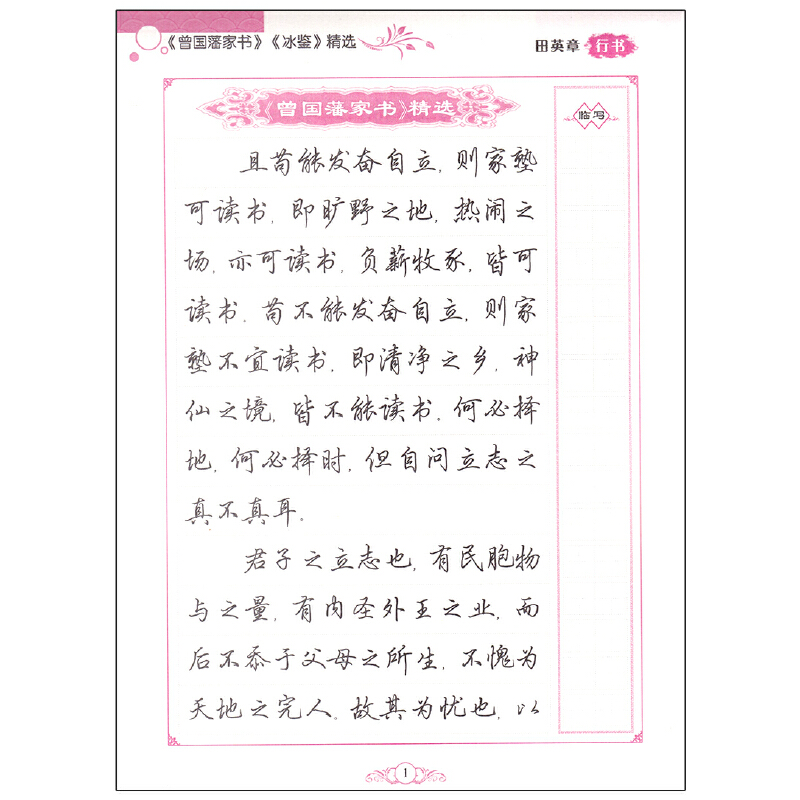 《曾国藩家书》《冰鉴》精选
田英章 行书
《曾国藩家书》精选
临写
且苟能发奋自立，则家塾
可读书，即旷野之地，热闹之
场，亦可读书，负薪牧豕，皆可
读书。苟不能发奋自立，则家
塾不宜读书，即清净之乡，神
仙之境，皆不能读书。何必择
地，何必择时，但自问立志之
真不真耳。
君子之立志也，有民胞物
与之量，有内圣外王之业，而
后不忝于父母之所生，不愧为
天地之完人。故其为忧也，以
1